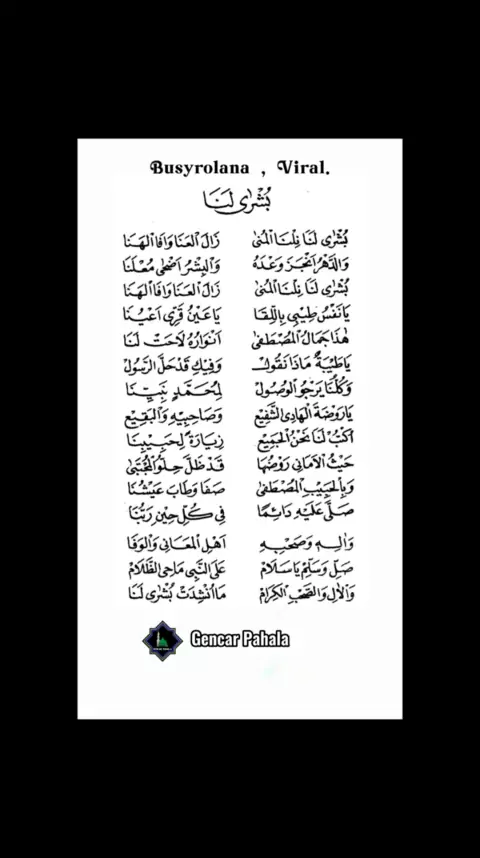 Busyrolana , Viral.
بُشْرٰى لَنَا
بُشْرٰى لَنَا نِلْنَا الْمُنٰى زَالَ الْعَنَا وَافَا الْهَنَا
وَالدَّهْرُ اَنْجَزَ وَعْدَهُ وَالْبِشْرُ اَضْحٰى مُعْلَنَا
بُشْرٰى لَنَا نِلْنَا الْمُنٰى زَالَ الْعَنَا وَافَا الْهَنَا
يَانَفْسُ طِيْبِى بِاللِّقَا يَاعَيْنُ قَرِّى اَعْيُنَا
هٰذَا جَمَالُ الْمُصْطَفٰى اَنْوَارُهُ لَاحَتْ لَنَا
يَاطَيْبَةُ مَاذَا نَقُوْلُ وَفِيْكِ قَدْ حَلَّ الرَّسُوْلُ
وَكُلُّنَا يَرْجُو الْوُصُوْلُ لِمُحَمَّدٍ نَبِيِّنَا
يَارَوْضَةَ الْهَادِى الشَّفِيْعِ وَصَاحِبَيْهِ وَالْبَقِيْعِ
اُكْتُبْ لَنَا نَحْنُ الْجَمِيْعِ زِيَارَةً لِحَبِيْبِنَا
حَيْثُ الْاَمَانِى رَوْضُهَا قَدْ ظَلَّ حِلْوُ الْمُجْتَنٰى
وَبِالْحَبِيْبِ الْمُصْطَفٰى صَفَا وَطَابَ عَيْشُنَا
صَلّٰى عَلَيْهِ دَائِمًا فِى كُلِّ حِيْنٍ رَبُّنَا
وَاٰلِهِ وَصَحْبِهِ اَهْلِ الْمَعَانِى وَالْوَفَا
صَلِّ وَسَلِّمْ يَاسَلَامْ عَلَى النَّبِى مَاحِى الظَّلَامْ
وَالْاٰلِ وَالصَّحْبِ الْكِرَامْ مَا اُنْشِدَتْ بُشْرٰى لَنَا
Gencar Pahala